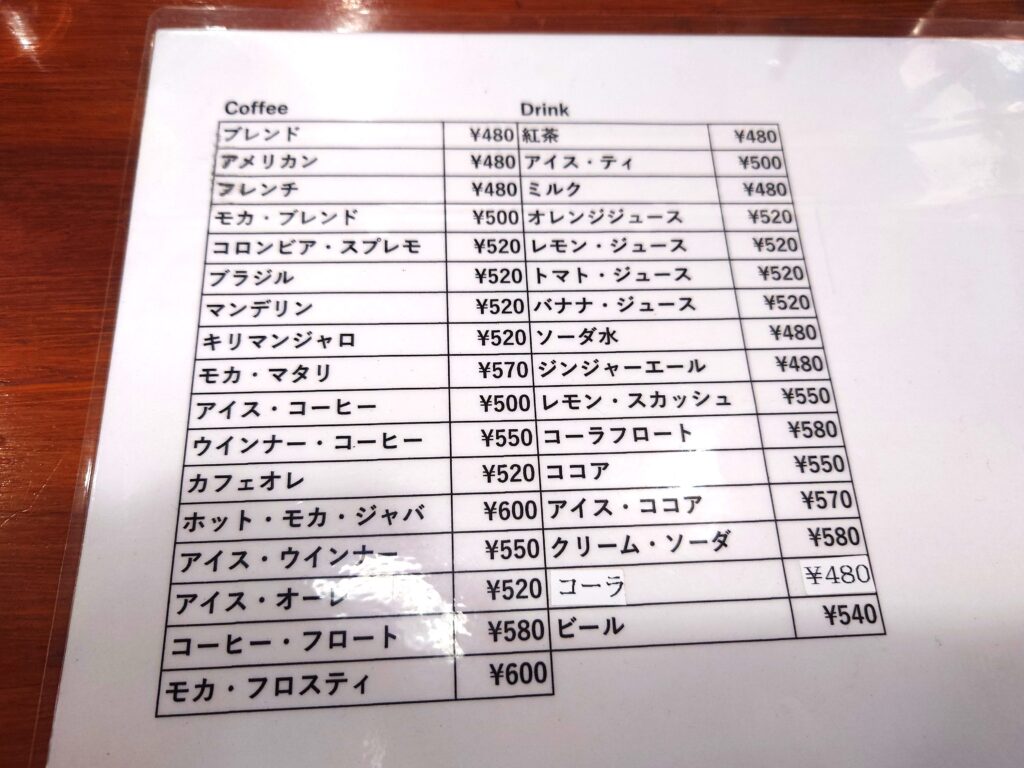 Coffee Drink
ブレンド ¥480 紅茶 ¥480
アメリカン ¥480 アイス・ティ ¥500
フレンチ ¥480 ミルク ¥480
モカ・ブレンド ¥500 オレンジジュース ¥520
コロンビア・スプレモ ¥520 レモン・ジュース ¥520
ブラジル ¥520 トマト・ジュース ¥520
マンデリン ¥520 バナナ・ジュース ¥520
キリマンジャロ ¥520 ソーダ水 ¥480
モカ・マタリ ¥570 ジンジャーエール ¥480
アイス・コーヒー ¥500 レモン・スカッシュ ¥550
ウインナー・コーヒー ¥550 コーラフロート ¥580
カフェオレ ¥520 ココア ¥550
ホット・モカ・ジャバ ¥600 アイス・ココア ¥570
アイス・ウインナー ¥550 クリーム・ソーダ ¥580
アイス・オーレ ¥520 コーラ ¥480
コーヒー・フロート ¥580 ビール ¥540
モカ・フロスティ ¥600